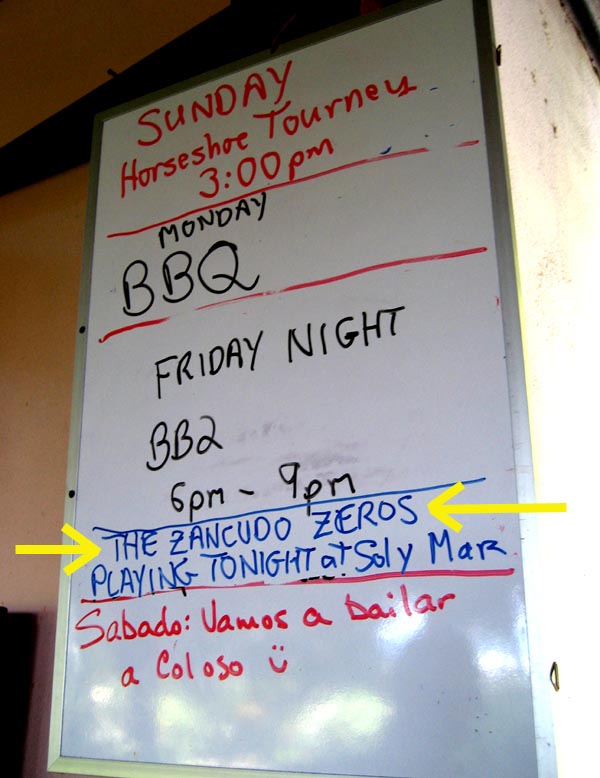 SUNDAY
Horseshoe Tourney
3:00pm
MONDAY
BBQ
FRIDAY NIGHT
BB2
6pm - 9pm
THE ZANCUDO ZEROS
PLAYING TONIGHT at Sol y Mar
Sabado: Vamos a bailar
a Coloso ü